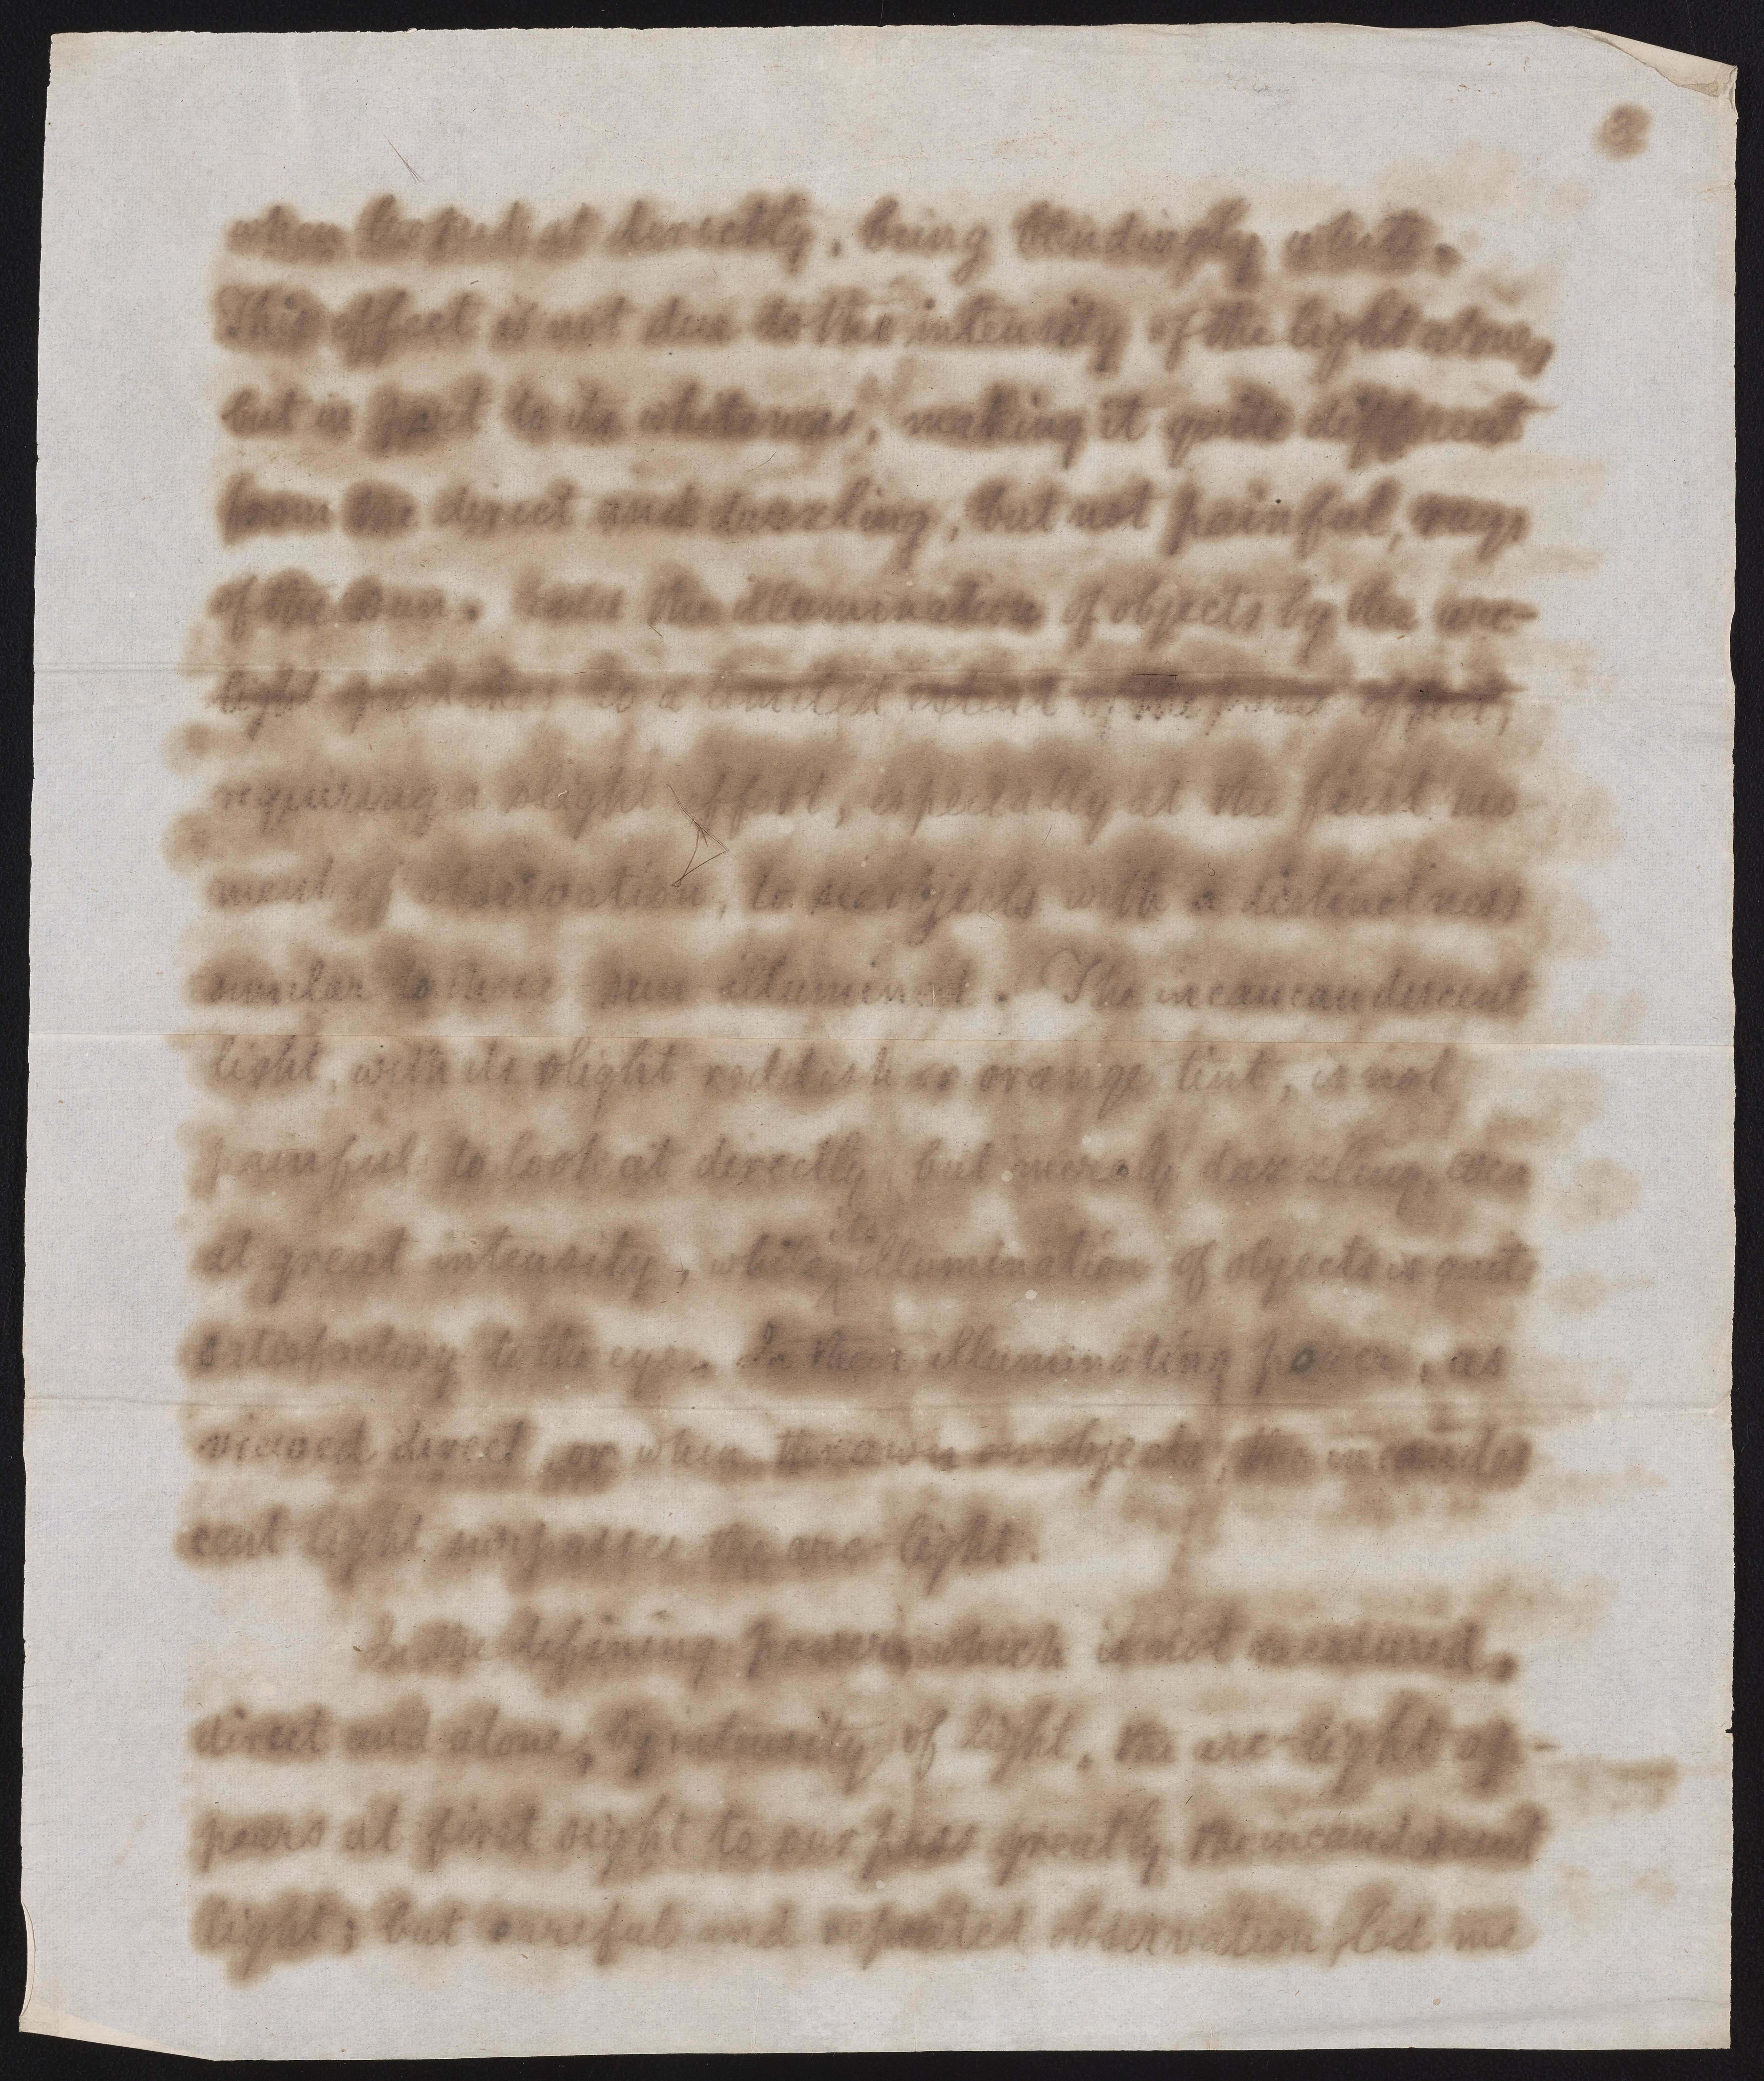 2
when looked at directly, being blindingly white.
This effect is not due to the intensity of the light alone,
but in part to its whiteness, making it quite different
from the direct and dazzling, but not painful, rays
of the sun. Even the illumination of objects by the arc-
light partakes to a limited extent of the same effect,
requiring a slight effort, especially at the first mo-
ment of observation, to see objects with a distinctness
similar to those sun illumined. The incancandescent
light, with its slight reddish or orange tint, is not
painful to look at directly, but merely dazzling, even
at great intensity, while its illumination of objects is quite
satisfactory to the eye. In their illuminating power, as
viewed direct, or when thrown on objects, the incandes
cent light surpasses the arc-light.
In the defining power, which is not measured,
direct and alone, by intensity of light, the arc-light ap-
pears at first sight to surpass greatly the incandescent
light; but careful and repeated observation led me